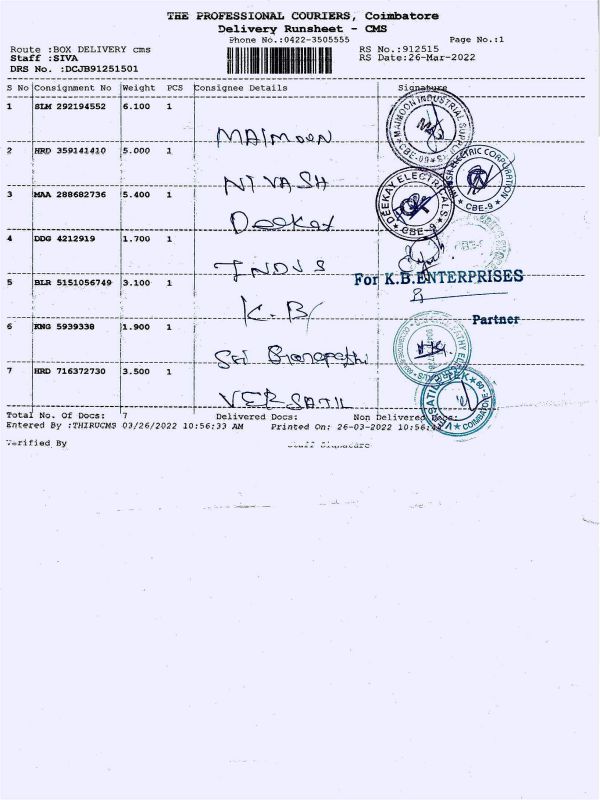 THE PROFESSIONAL COURIERS, Coimbatore
Delivery Runsheet - CMS
Phone No.:0422-3505555 Page No.:1
Route :BOX DELIVERY cms RS No.:912515
Staff :SIVA RS Date:26-Mar-2022
DRS No. :DCJB91251501
S No Consignment No Weight PCS Consignee Details Signature
1 SLM 292194552 6.100 1
MAIMOON
MAIMOON INDUSTRIAL
2 HRD 359141410 5.000 1
NIVASH
ELECTRIC CORPORATION
CBE-9
3 MAA 288682736 5.400 1
Deekay
DEEKAY ELECTRICALS
CBE-9
4 DDG 4212919 1.700 1
INDUS
5 BLR 5151056749 3.100 1
K.B
For K.B.ENTERPRISES
Partner
6 KNG 5939338 1.900 1
Sri
7 HRD 716372730 3.500 1
VERSATIL
Total No. Of Docs: 7 Delivered Docs: Non Delivered Docs:
Entered By :THIRUCMS 03/26/2022 10:56:33 AM Printed On: 26-03-2022 10:56:
Verified By Staff Signature